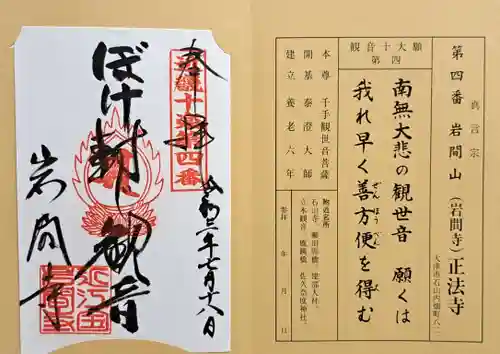 奉拝
近江観音第四番
令和二年七月十八日
ぼけ封じ観音
岩間寺
第四番 岩間山 (岩間寺) 正法寺
真言宗
大津市石山内畑町八二
観音十大願
第四
南無大悲の観世音 願くは
我れ早く善方便を得む
ぜんほうべん
え
本尊 千手観世音菩薩
開基 泰澄大師
建立 養老六年
附近名所
石山寺、瀬田唐橋、建部大社、
立木観音、鹿跳橋、佐久奈度神社、
参拝 年 月 日